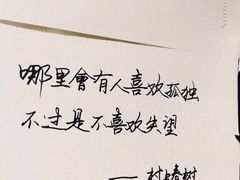 哪里會有人喜欢孤独
不过是不喜欢失望
——村上春树